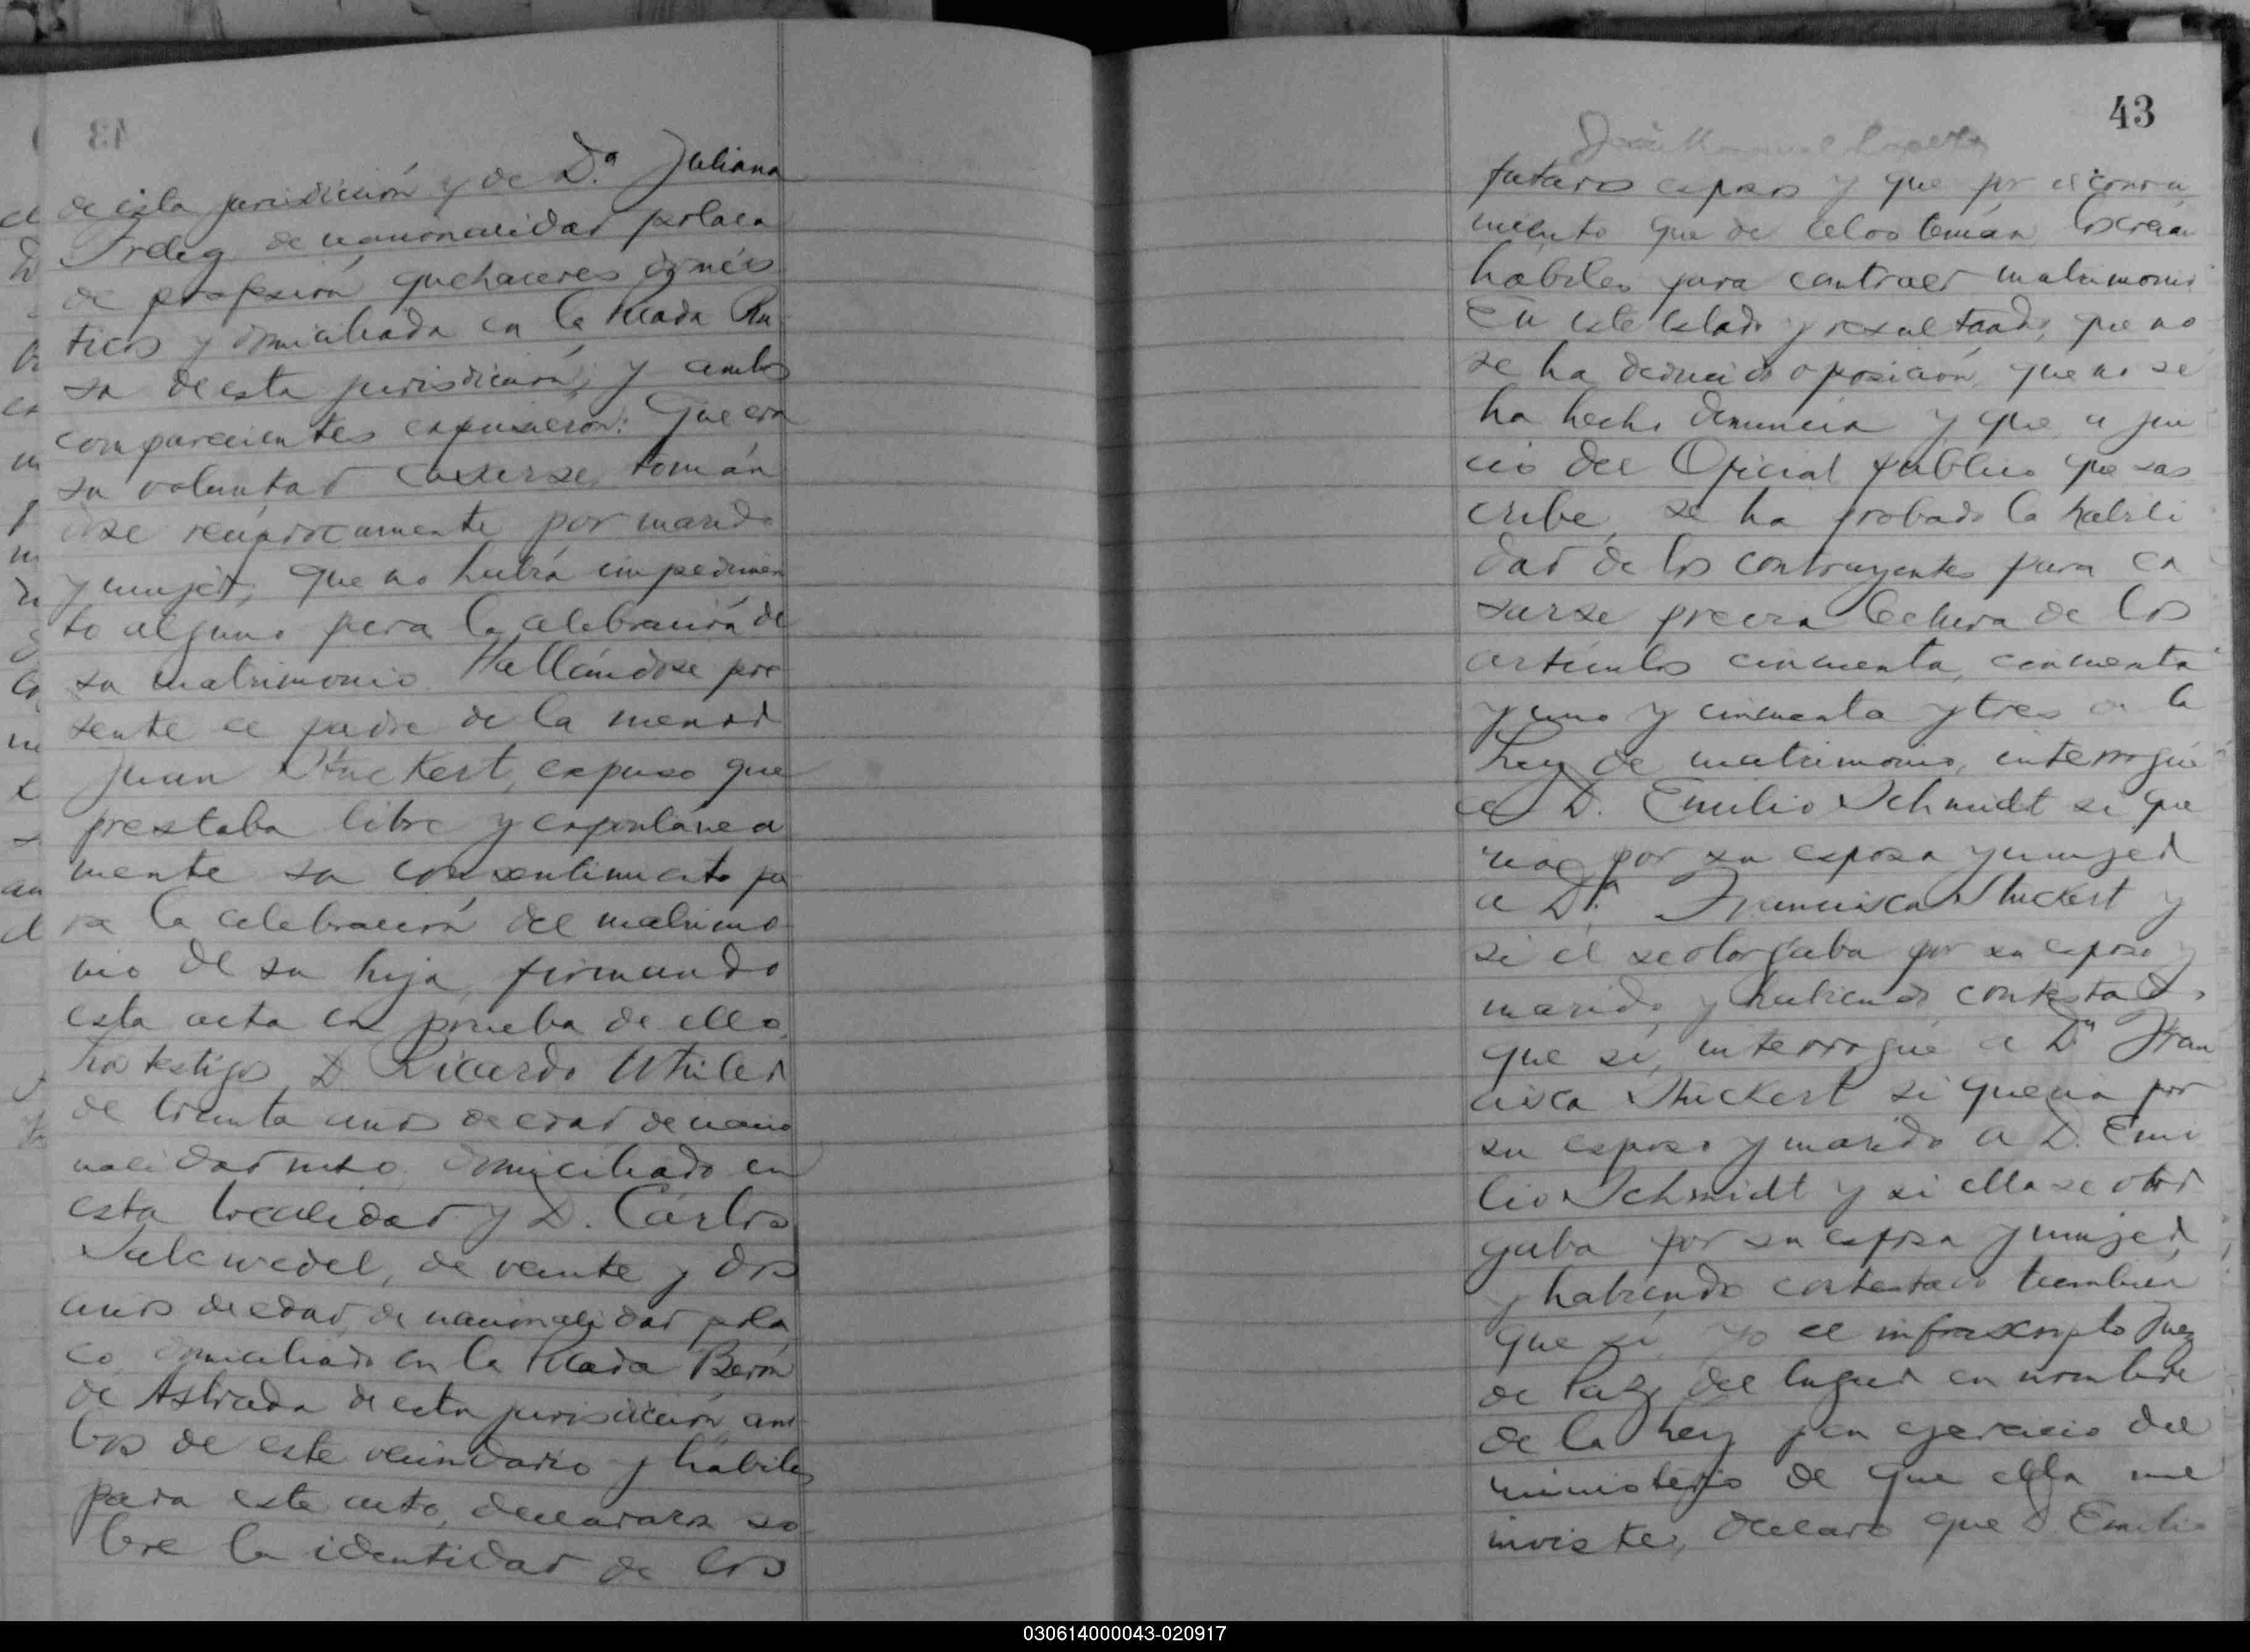 de esta jurisdicción y de D.ª Juliana
Freleg de nacionalidad polaca
de profesión quehaceres domés
ticos y domiciliada en la Picada Ru
sa de esta jurisdicción; y ambos
comparecientes expusieron: Que era
su voluntad casarse, tomán
dose recíprocamente por marido
y mujer, que no había impedimen
to alguno para la celebración de
su matrimonio. Hallándose pre
sente el padre de la menor
Juan Stuckert, expuso que
prestaba libre y expontánea
mente su consentimiento pa
ra la celebración del matrimo
nio de su hija, firmando
esta acta en prueba de ello.
Los testigos D. Ricardo
de treinta años de edad de nacio
nalidad ruso domiciliado en
esta localidad y D. Cárlos
Salewedel, de veinte y dos
años de edad, de nacionalidad pola
co, domiciliado en la Picada Berón
de Astrada de esta jurisdicción, am
bos de este vecindario y hábiles
para este acto, declararon so
bre la identidad de los
43
futuros esposos y que por el conoci
miento que de ellos tenían, los creían
hábiles para contraer matrimonio
En este estado y resultando, que no
se ha deducido oposición, que no se
ha hecho denuncia y que a jui
cio del Oficial público que sus
cribe, se ha probado la habili
dad de los contrayentes para ca
sarse previa lectura de los
artículos cincuenta, cincuenta
y uno y cincuenta y tres de la
Ley de matrimonio, interrogué
a D. Emilio Schmidt si que
ria por su esposa y mujer
a D.ª Francisca Stuckert y
si él se otorgaba por su esposo y
marido, y habiendo contestado,
que sí, interrogué a D.ª Fran
cisca Stuckert si quería por
su esposo y marido a D. Emi
lio Schmidt y si ella se otor
gaba por su esposa y mujer,
y habiendo contestado tambien
que sí, yo el infrascripto Juez
de Paz del lugar en nombre
de la Ley y en ejercicio del
ministerio de que ella me
inviste, declaro que D. Emilio
030614000043-020917